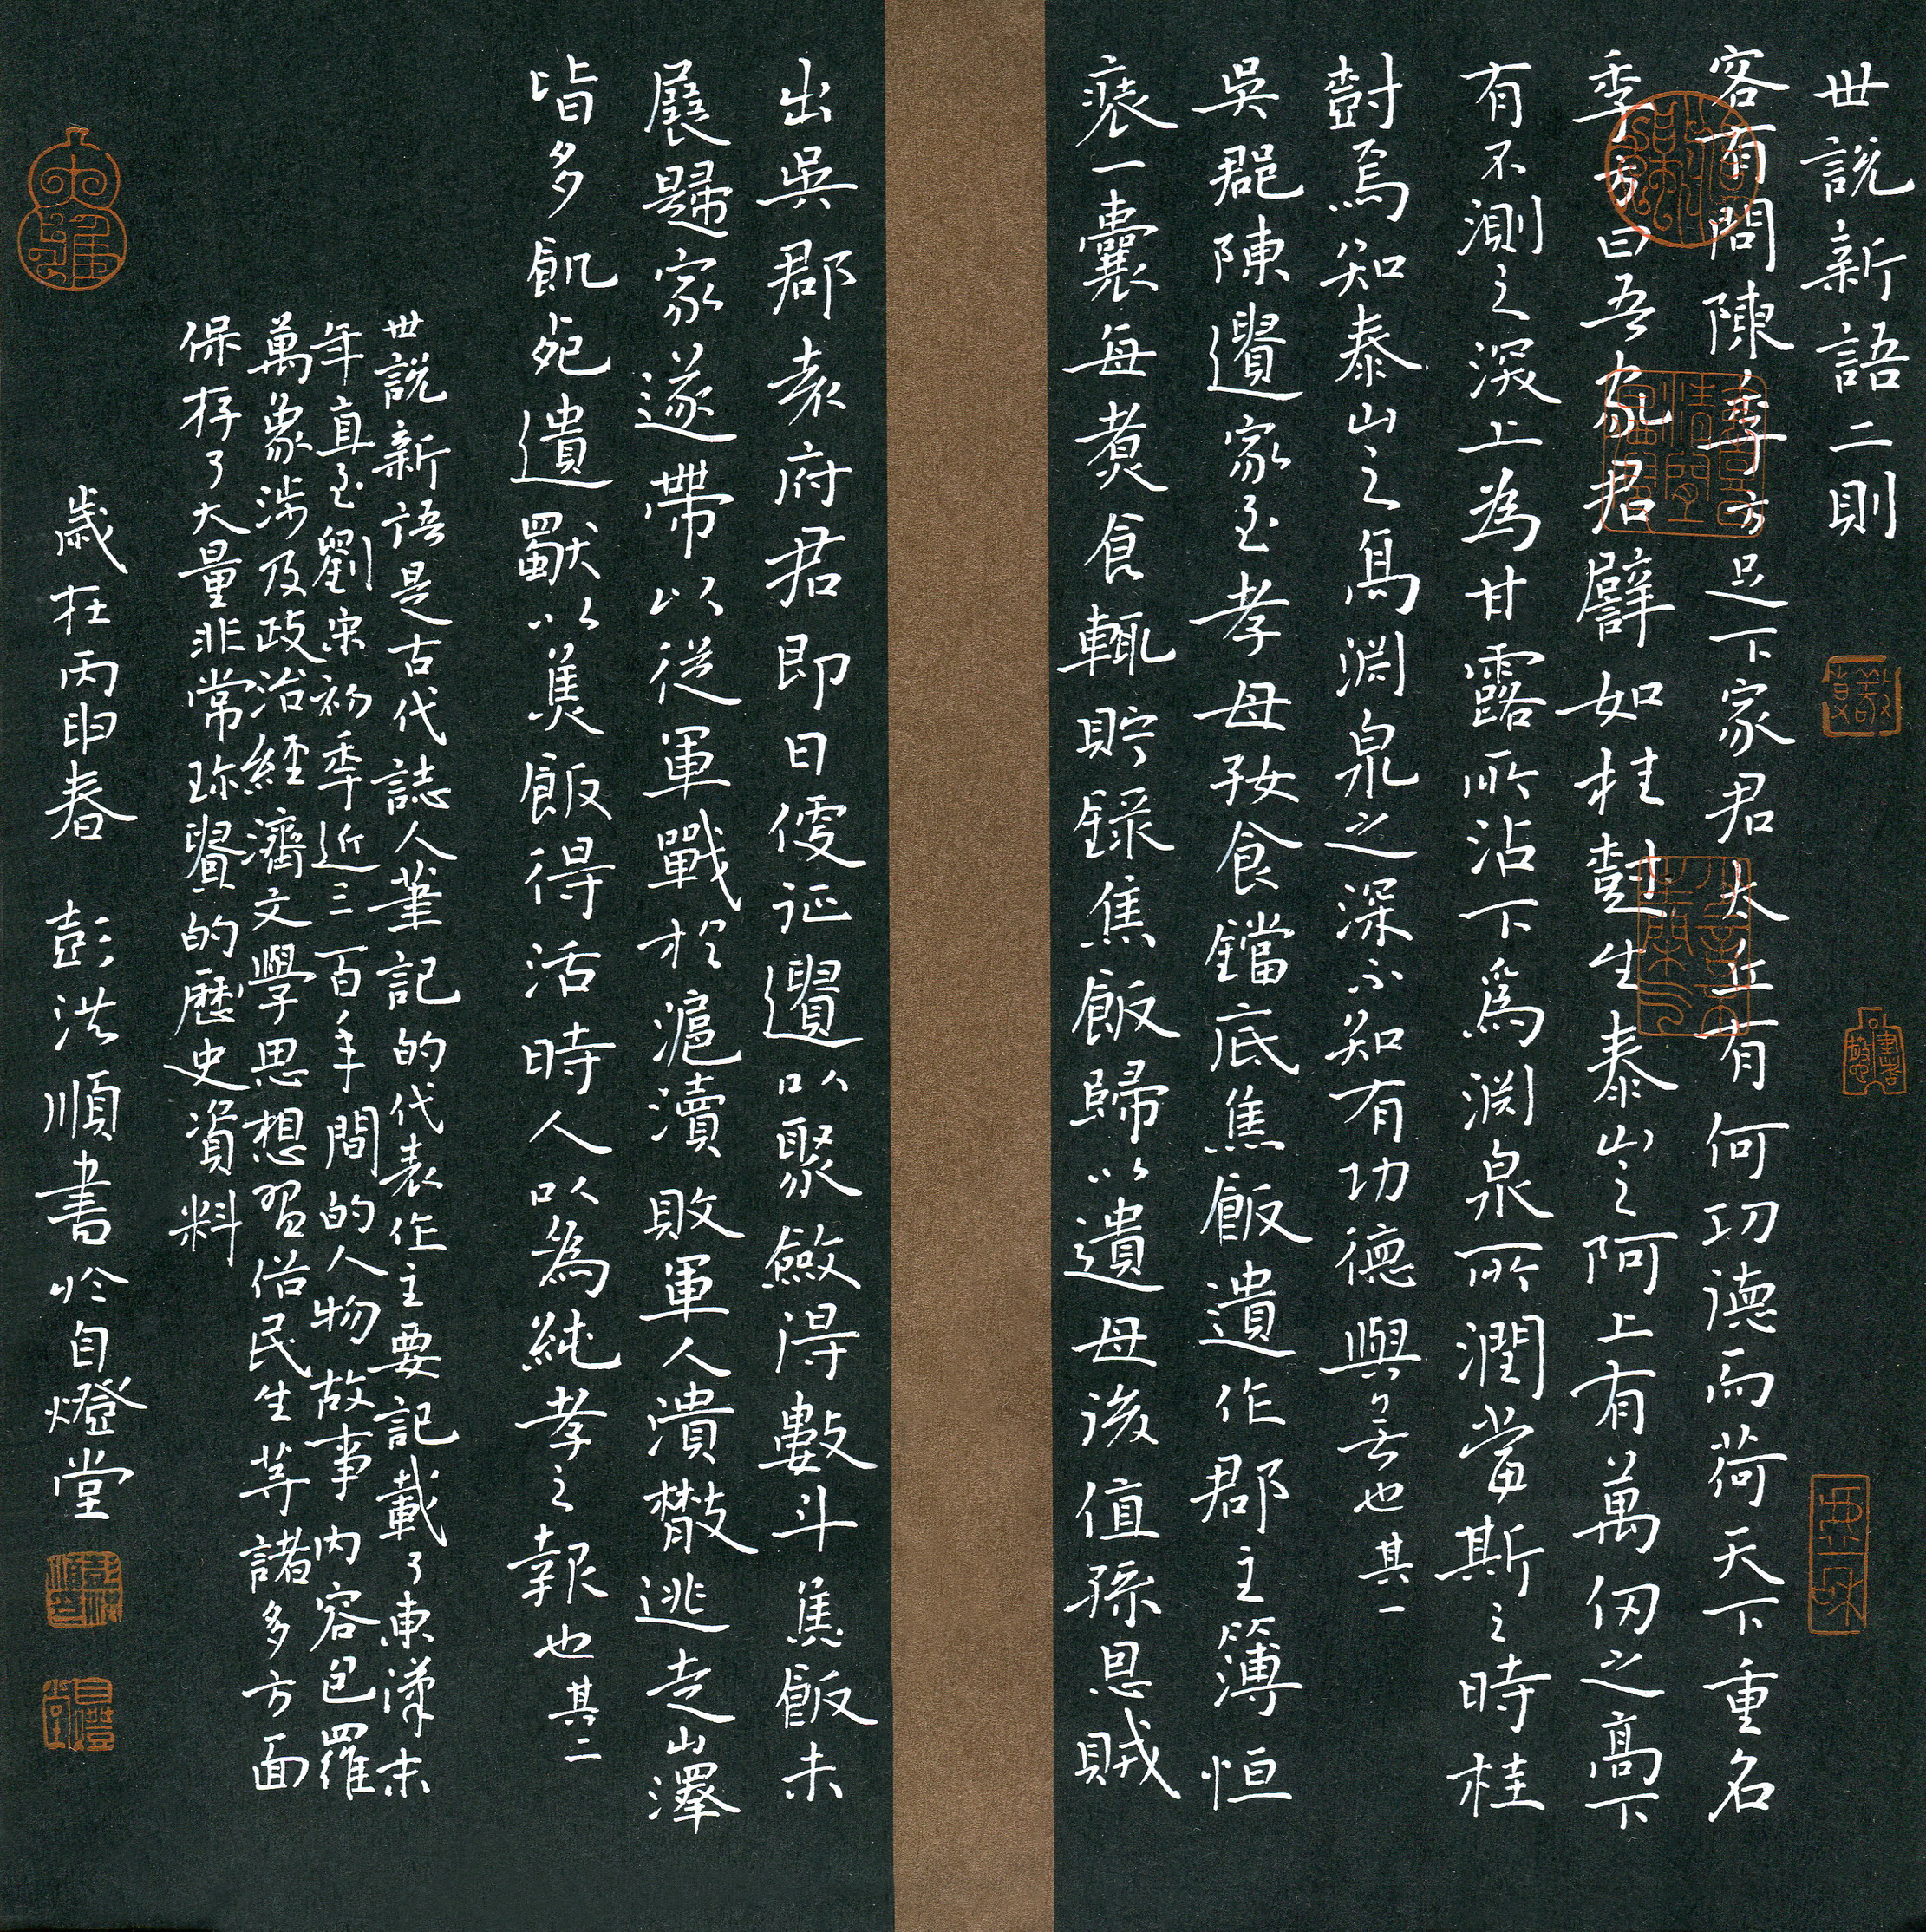 世說新語二則
客有問陳季方足下家君太丘有何功德而荷天下重名
季方曰吾家君譬如桂樹生泰山之阿上有萬仞之高下
有不測之深上為甘露所沾下為淵泉所潤當斯之時桂
樹焉知泰山之高淵泉之深不知有功德與無也其一
吳郡陳遺家至孝母好食鐺底焦飯遺作郡主簿恒
裝一囊每煑食輒貯錄焦飯歸以遺母後值孫恩賊
出吳郡袁府君即日便征遺以聚斂得數斗焦飯未
展歸家遂帶以從軍戰於滬瀆敗軍人潰散逃走山澤
皆多飢死遺獸以焦飯得活時人以為純孝之報也其二
世說新語是古代誌人筆記的代表作主要記載了東漢末
年直至劉宋初季近三百年間的人物故事内容包羅
萬象涉及政治經濟文學思想習俗民生等諸多方面
保存了大量非常珎貴的歷史資料
歲在丙申春 彭洪順書於自燈堂